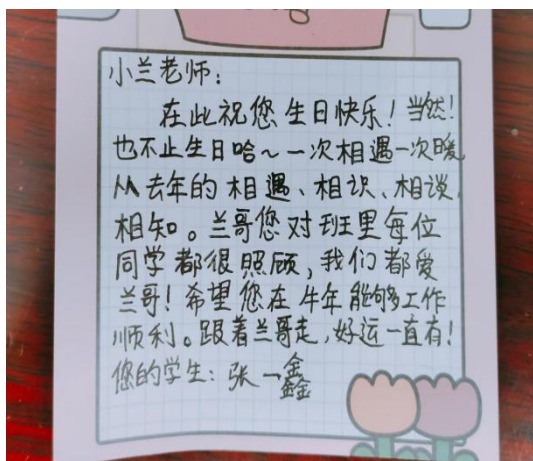 小兰老师：
在此祝您生日快乐！当然！
也不止生日哈～一次相遇一次暖，
从去年的相遇、相识、相谈，
相知。兰哥您对班里每位
同学都很照顾，我们都爱
兰哥！希望您在牛年能够工作
顺利。跟着兰哥走，好运一直有！
您的学生：张一鑫